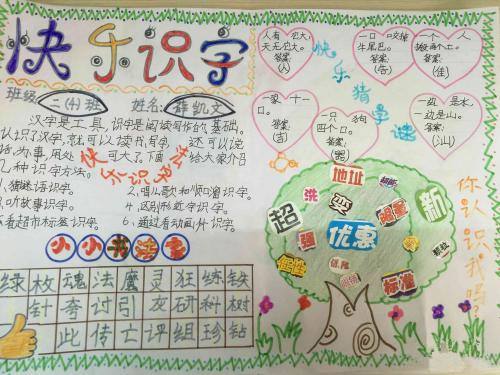 快乐识字
班级: 二(4)班 姓名: 薛凯文
汉字是工具,识字是阅读写作的基础。
认识了汉字,就可以读书,写字 还可以说
话,办事,用处 可大了,下面 给大家介绍
几种识字方法。
快乐识字方法
1、猜谜语识字。 2、唱儿歌和顺口溜识字。
3、听故事识字。 4、区别形近字识字。
看超市标签识字。 6、通过看动画片识字。
小小书法家
绿 枚 魂 法 魔 灵 狂 练 铁
针 夸 讨 引 灰 研 科 树
此 传 亡 评 组 珍 钻
快乐猜字谜
人有它大,
天无它大。
答案:
(人)
一口咬掉
牛尾巴。
答案:
(告)
一个人
搬两个土。
答案:
(佳)
一家十一
口。
答案:
(吉)
一只狗
四个口。
答案:
(器)
一边是水,
一边是山。
答案:
(汕)
地址
洗
超
变
新
强
优惠
标准
颗粒
你认识我吗?